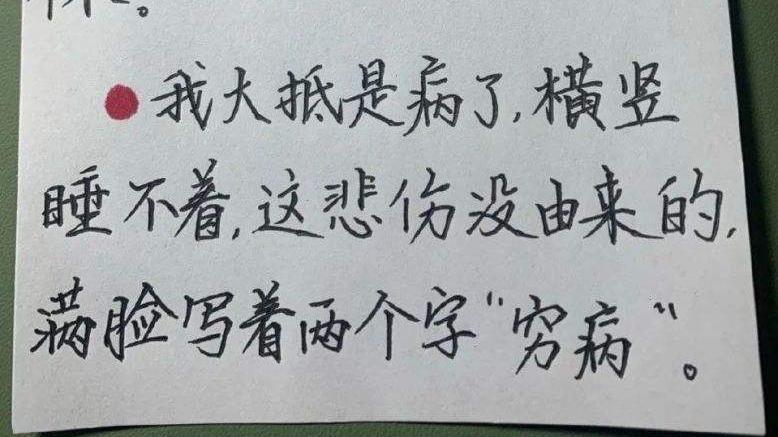 我大抵是病了,横竖
睡不着,这悲伤没由来的,
满脸写着两个字"穷病"。